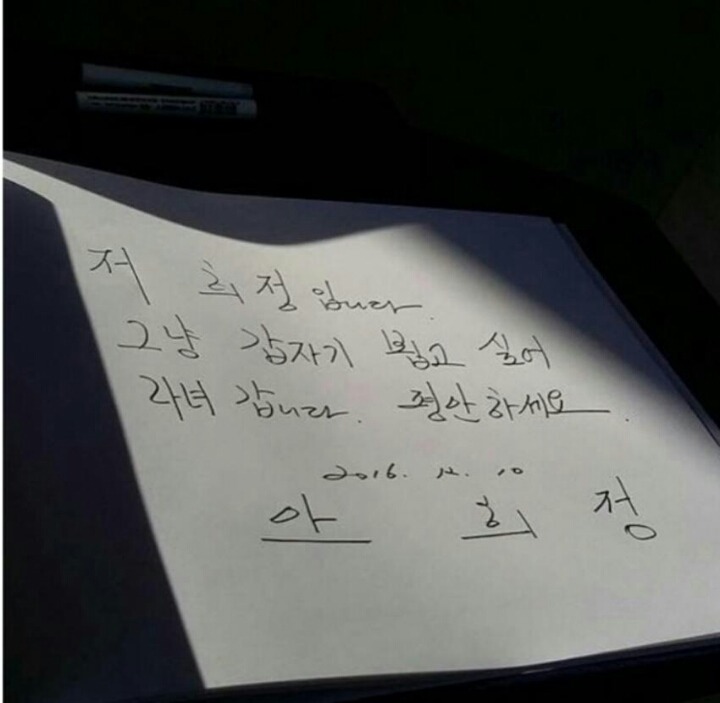 저 희정입니다.
그냥 갑자기 뵙고 싶어
라녀 갑니다. 평안하세요.
2016. 12. 10
안 희 정